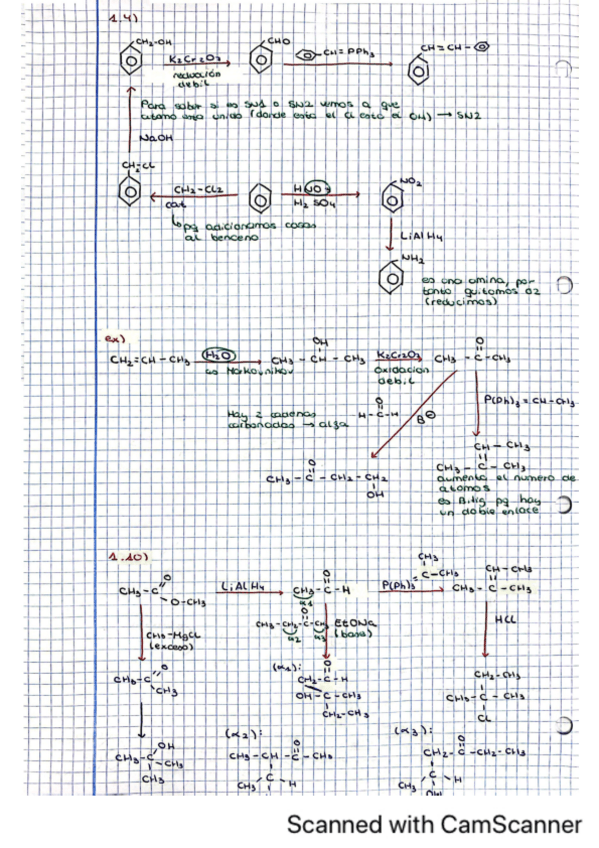 1.4)
CH2-OH
K2Cr2O7
reducción
debil
CHO
CH=PPh3
CH=CH-
Para saber si es SN1 o SN2 vemos a que
atomo esta unido (donde esta el Cl esta el OH) → SN2
NaOH
CH2-Cl
CH2-Cl2
cat
HNO3
H2SO4
NO2
pq adicionamos cosas
al benceno
LiAlH4
NH2
es una amina, por
tanto quitamos O2
(reducimos)
ex)
CH2=CH-CH3
H2O
es Markovnikov
OH
CH3 - CH - CH3
K2Cr2O7
oxidacion
debil
O
CH3 - C - CH3
Hay 2 cadenas
carbonadas →
O
H-C-H
B⊖
P(Ph)3 = CH-CH3
O
CH3 - C - CH2 - CH2
OH
CH - CH3
CH3 - C - CH3
aumenta el numero de
atomos
es pq hay
un doble enlace
1.10)
CH3-C
O
O-CH3
LiAlH4
O
CH3-C-H
α1
P(Ph)3
CH3
C-CH3
CH-CH3
CH3 - C - CH3
CH3-MgCl
(exceso)
O
CH3-CH2-C-CH3
α2
α3
EtONa
(base)
HCl
CH3-C
O
CH3
(α1):
O
CH2-C-H
OH-C-CH3
CH2-CH3
CH2-CH3
CH3-C - CH3
Cl
OH
CH3-C-CH3
CH3
(α2):
O
CH3-CH-C-CH3
CH3
C
H
(α3):
O
CH2-C-CH2-CH3
CH3
C
H
OH
Scanned with CamScanner